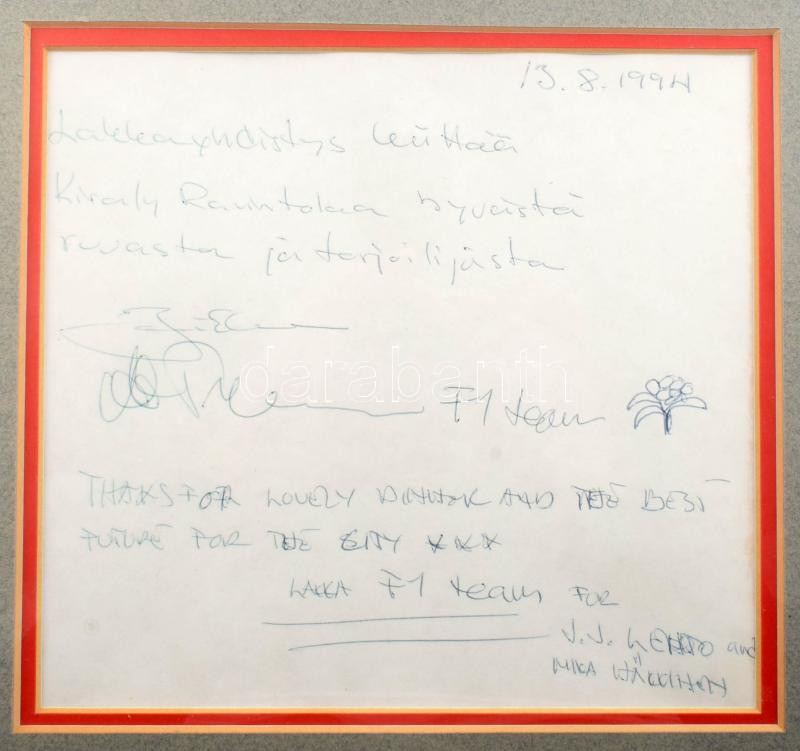 13.8.1994
Lakkayhdistys kiittää
Kiraly Ravintolaa hyvästä
ruuasta ja tarjoilijasta
F1 team
THAKS FOR LOVELY DINNER AND THE BEST
FUTURE FOR THE CITY XXX
LAKKA F1 team FOR
J.J. LEHTO and
MIKA HÄKKINEN
darabanth